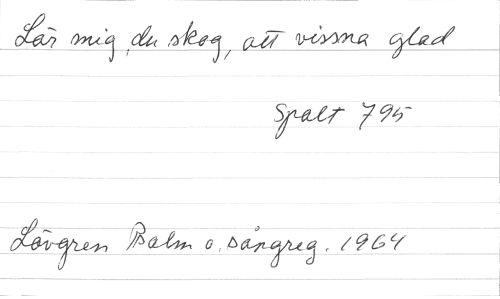 Lär mig, du skog, att vissna glad
Spalt 795
Lövgren Psalm o. sångreg. 1964